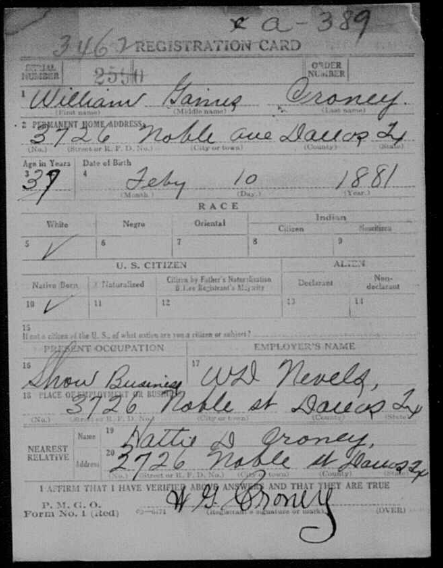 a-389
3462 REGISTRATION CARD
SERIAL NUMBER 2590 ORDER NUMBER
1 William Gaines Croney.
(First name) (Middle name) (Last name)
2 PERMANENT HOME ADDRESS
3726 Noble ave Dallas Tx
(No.) (Street or R. F. D. No.) (City or town) (County) (State)
Age in Years Date of Birth
3 39 4 Feby 10 1881
(Month.) (Day.) (Year.)
RACE
White Negro Oriental Indian
Citizen
5 ✓ 6 7 8 9
U. S. CITIZEN ALIEN
Native Born Naturalized Citizen by Father's Naturalization Before Registrant's Majority Declarant Non-declarant
10 ✓ 11 12 13 14
15
If not a citizen of the U. S., of what nation are you a citizen or subject?
PRESENT OCCUPATION EMPLOYER'S NAME
16 Show Business 17 WD Nevels,
18 PLACE OF EMPLOYMENT OR BUSINESS
3726 Noble st Dallas Tx
(No.) (Street or R. F. D. No.) (City or town) (County) (State)
NEAREST RELATIVE Name 19 Hattie D Croney,
Address 20 2726 Noble st Dallas Tx
(No.) (Street or R. F. D. No.) (City or town) (County) (State)
I AFFIRM THAT I HAVE VERIFIED ABOVE ANSWERS AND THAT THEY ARE TRUE
P. M. G. O.
Form No. 1 (Red) W G. Croney
(Registrant's signature or mark) (OVER)